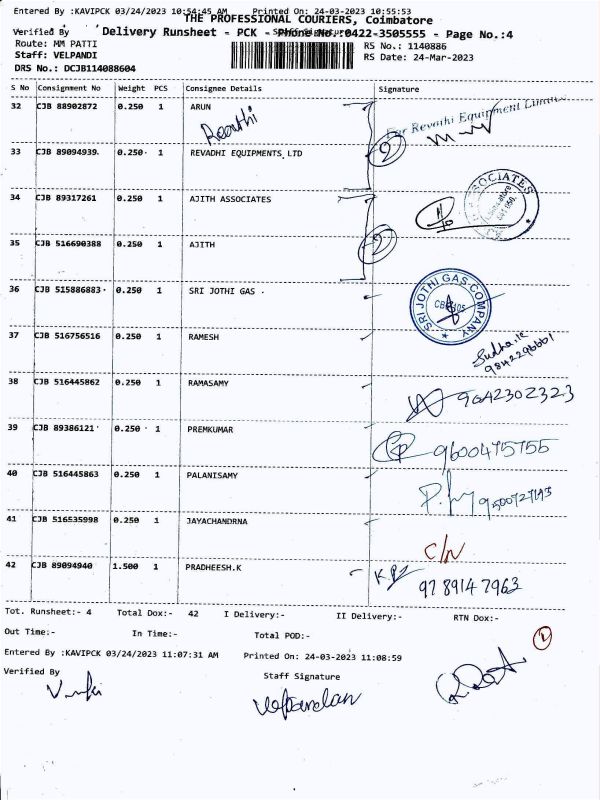 Entered By :KAVIPCK 03/24/2023 10:54:45 AM Printed On: 24-03-2023 10:55:53
THE PROFESSIONAL COURIERS, Coimbatore
Verified By
Delivery Runsheet - PCK - Phone No.:0422-3505555 - Page No.:4
Route: MM PATTI
RS No.: 1140886
Staff: VELPANDI
RS Date: 24-Mar-2023
DRS No.: DCJB114088604
S No Consignment No Weight PCS Consignee Details Signature
32 CJB 88902872 0.250 1 ARUN
For Revathi Equipment Limited
33 CJB 89094939 0.250 1 REVADHI EQUIPMENTS LTD
34 CJB 89317261 0.250 1 AJITH ASSOCIATES
35 CJB 516690388 0.250 1 AJITH
36 CJB 515886883 0.250 1 SRI JOTHI GAS
SRI JOTHI GAS COMPANY
37 CJB 516756516 0.250 1 RAMESH
38 CJB 516445862 0.250 1 RAMASAMY
9042302323
39 CJB 89386121 0.250 1 PREMKUMAR
9600475755
40 CJB 516445863 0.250 1 PALANISAMY
41 CJB 516535998 0.250 1 JAYACHANDRNA
C/N
42 CJB 89094940 1.500 1 PRADHEESH.K
97 89147963
Tot. Runsheet:- 4 Total Dox:- 42 I Delivery:- II Delivery:- RTN Dox:-
Out Time:- In Time:- Total POD:-
Entered By :KAVIPCK 03/24/2023 11:07:31 AM Printed On: 24-03-2023 11:08:59
Verified By
Staff Signature